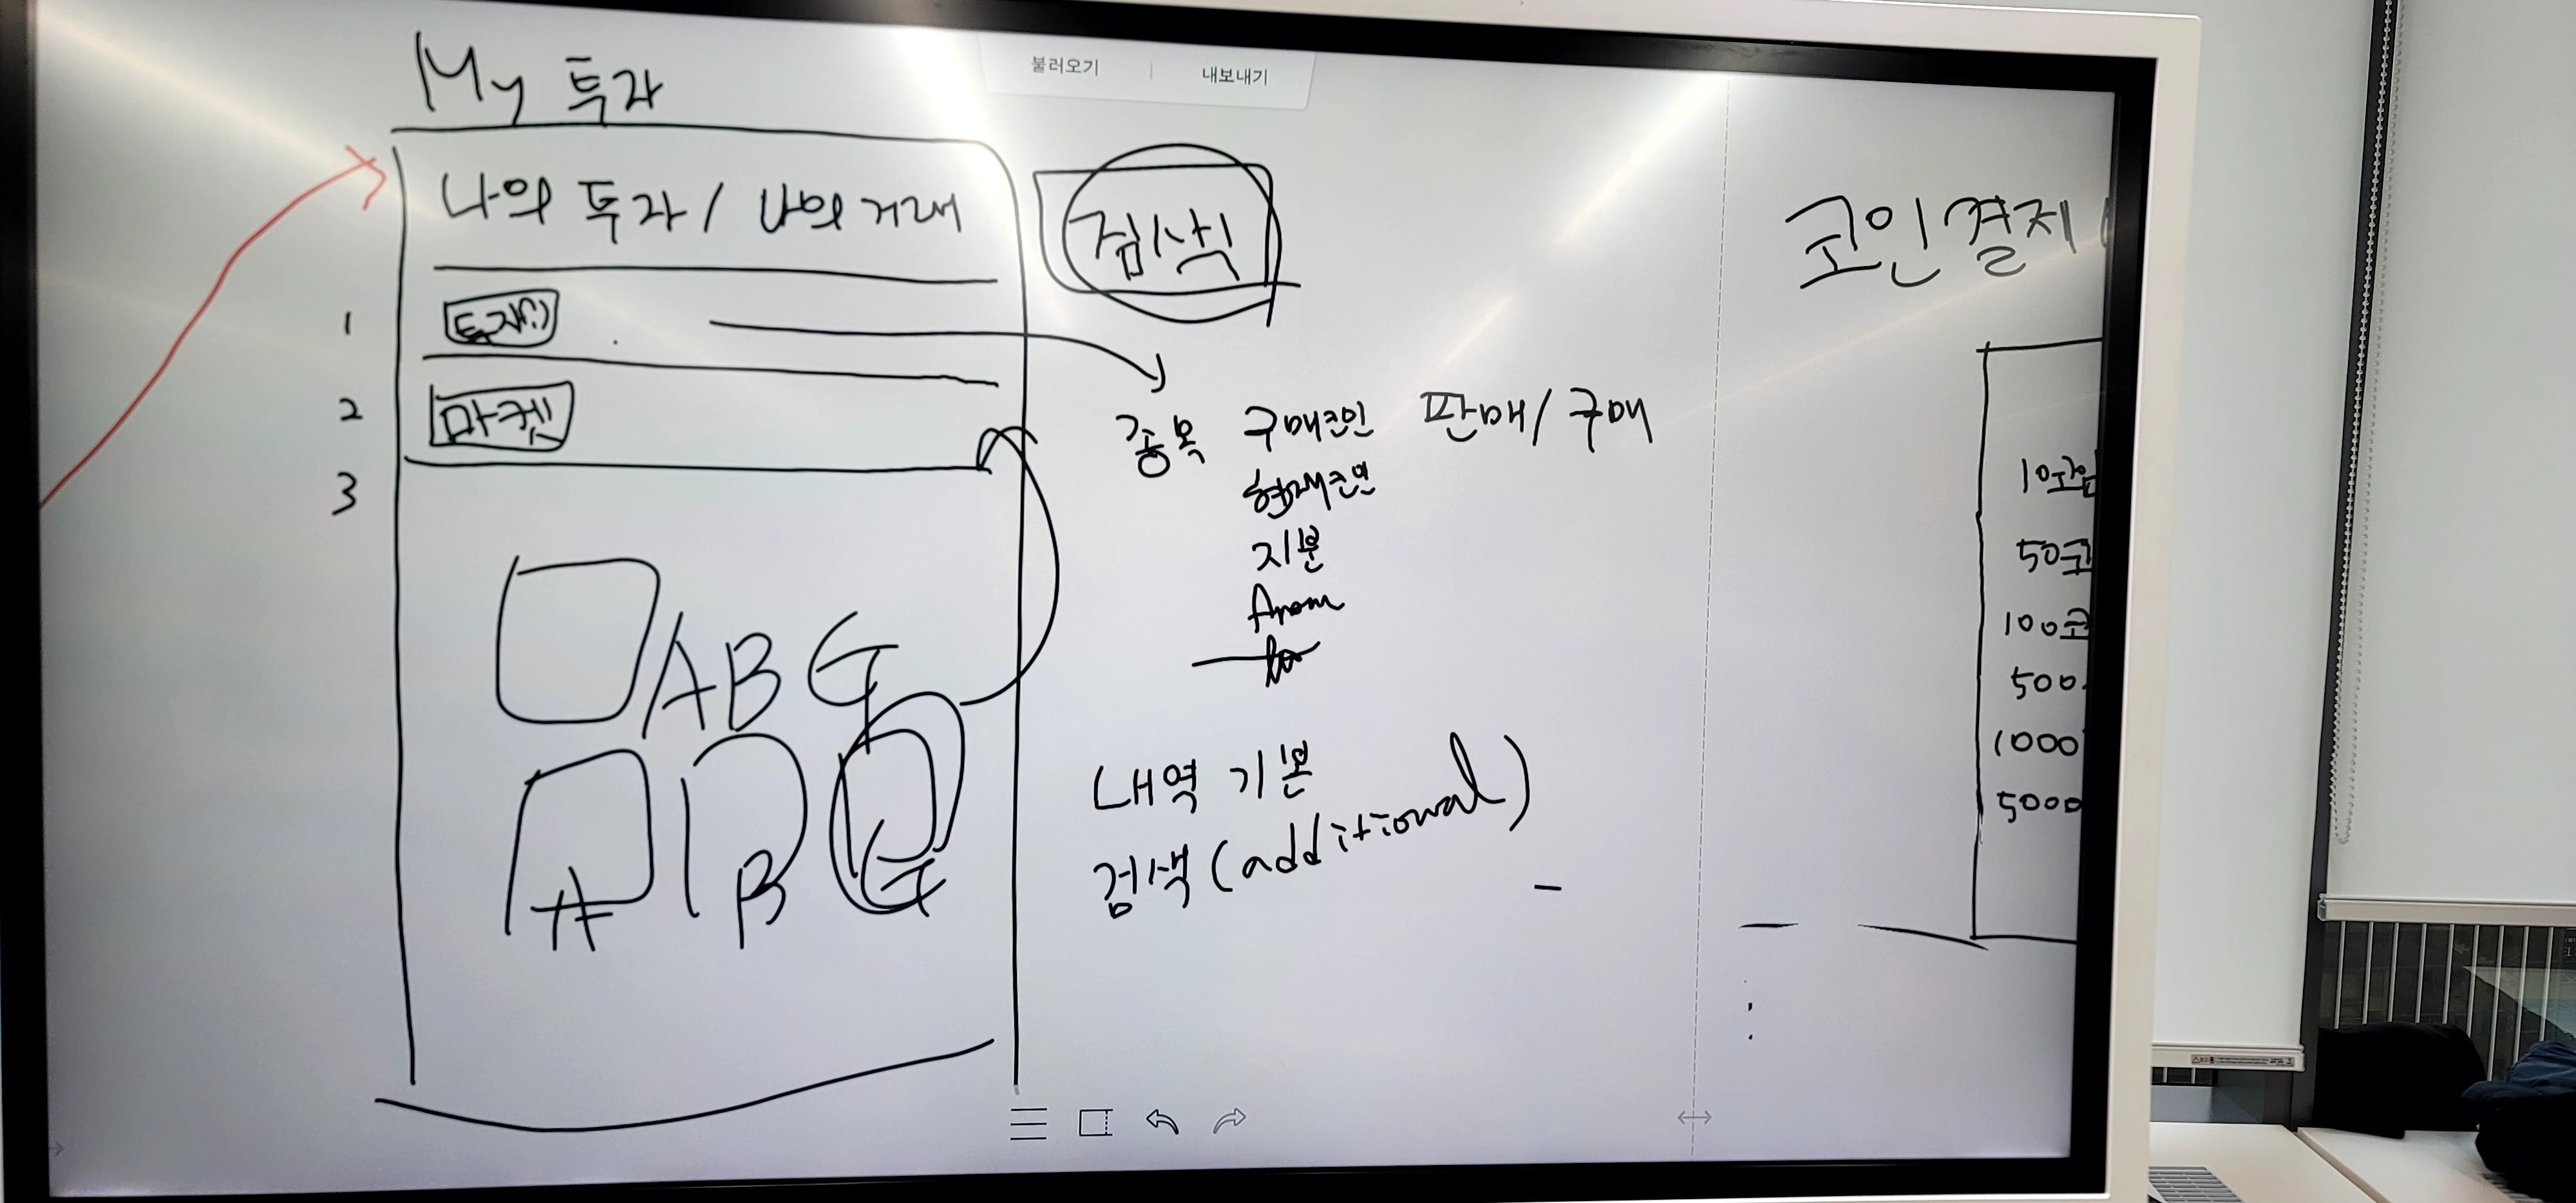 불러오기 내보내기
My 투자
나의 투자 / 나의 거래
검색
1 투자(?)
2 마켓
3
종목 구매코인 판매/구매
현재코인
지분
From
to
A B
A B
내역 기본
검색 (additional)
코인 결제
10코인
50코
100코
500
1000
5000